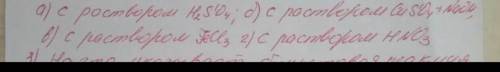 а) с раствором H₂SO₄; б) с раствором CuSO₄ + NaOH,
в) с раствором FeCl₃ г) с раствором HNO₃